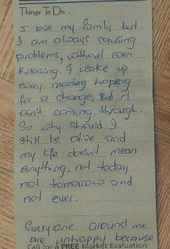 Things To Do...
I love my family but
I am always causing
problems, without even
knowing. I wake up
every morning hoping
for a change, but it
isn't coming through.
So why should I
still be alive and
my life doesn't mean
anything, not today
not tomorrow and
not ever.
Everyone around me
are unhappy because
FREE